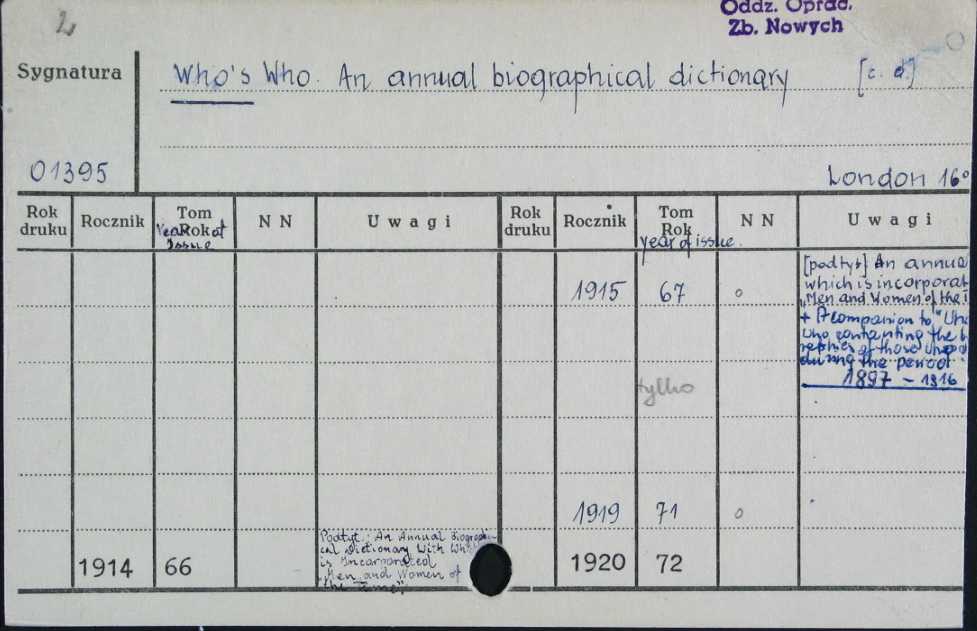 2
Oddz. Oprac.
Zb. Nowych
Sygnatura
Who's Who. An annual biographical dictionary [c. d.]
01395
London 16°
Rok druku
Rocznik
Tom Rok
Year of Issue
N N
Uwagi
Rok druku
Rocznik
Tom Rok
year of issue.
N N
Uwagi
1915 67 o
[podtyt] An annua
which is incorporat
"Men and Women of the
+ A companion to "Who
Who containing the b
raphies of those who
during the period
1897 – 1916
tylko
1919 71 o
1914 66
Podtyt.: An Annual Biographi-
cal Dictionary With Wh
is Incorporated
"Men and Women of
the Time".
1920 72